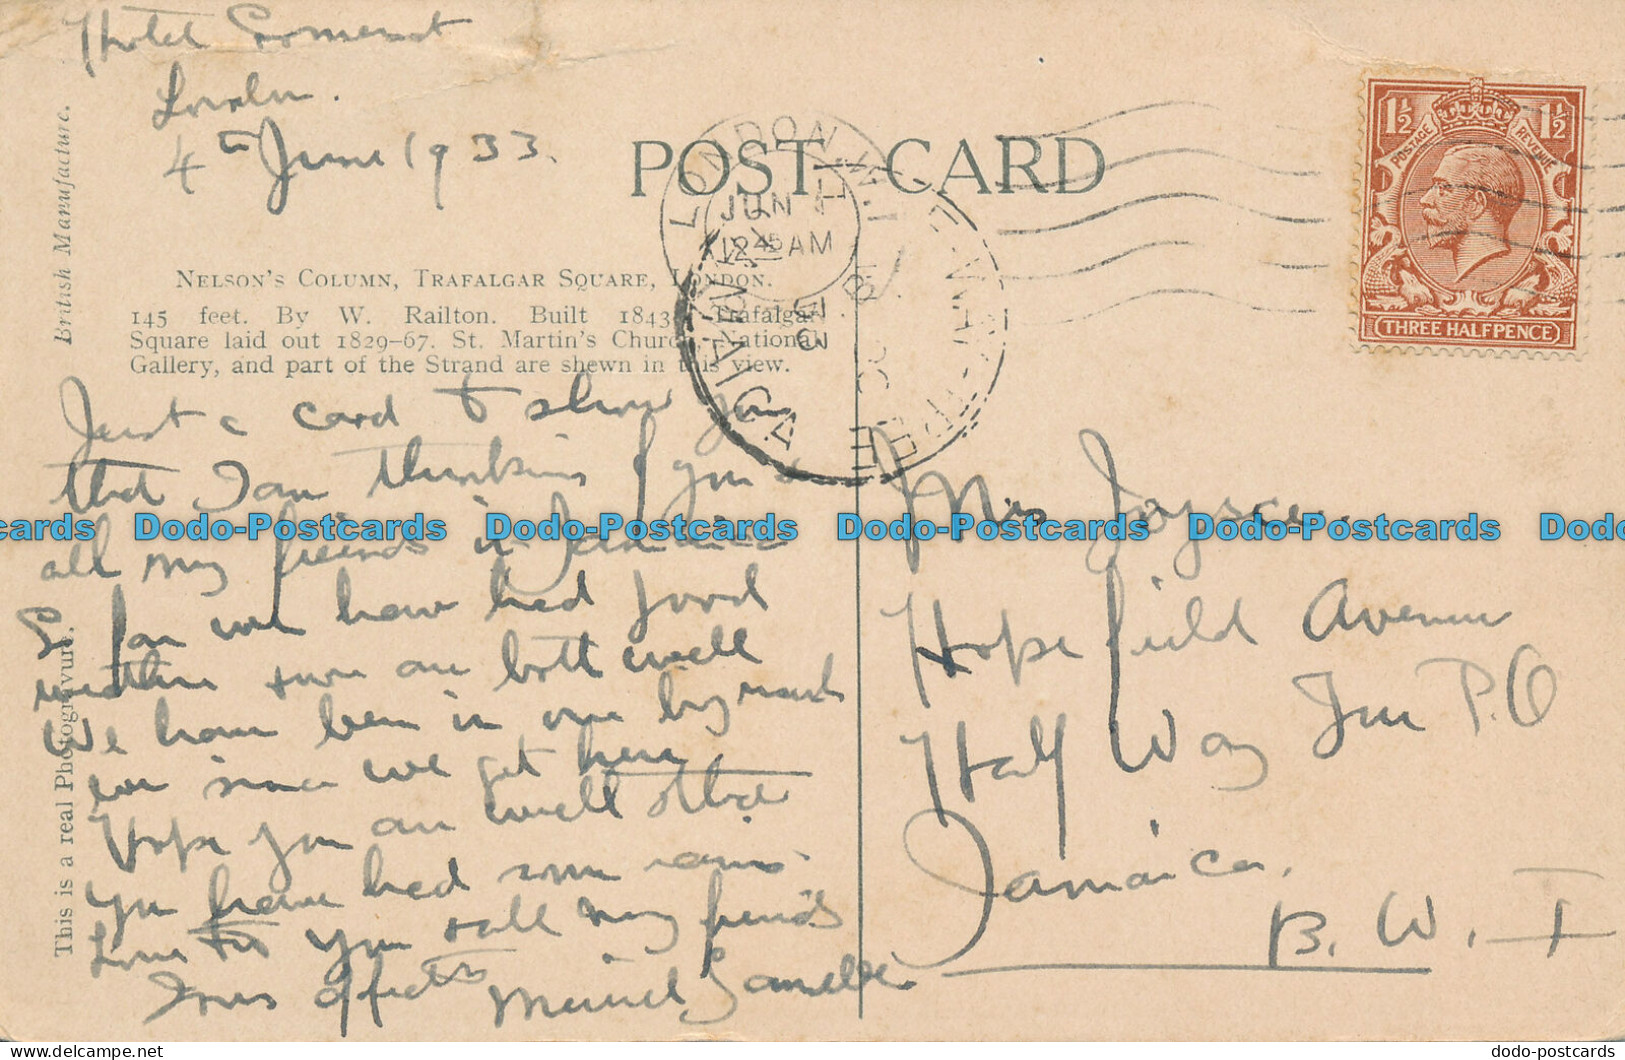 Hotel Somerset
London.
4th June 1933.
POST CARD
British Manufacture.
NELSON'S COLUMN, TRAFALGAR SQUARE, LONDON.
145 feet. By W. Railton. Built 1843. Trafalgar
Square laid out 1829–67. St. Martin's Church, National
Gallery, and part of the Strand are shewn in this view.
This is a real Photogravure.
LONDON. W.1
JUN
12 45 AM
JAMAICA
1½ 1½
POSTAGE REVENUE
THREE HALFPENCE
Just a card to show you
that I am thinking of you &
all my friends in Jamaica
So far we have had good
weather & we are both well
We have been in one big
since we get here
Hope you are well & that
you have had some rains.
Love to you & all my friends
Yours affectly Muriel
Mrs Joysce.
Hopefield Avenue
Half Way Tree P.O
Jamaica.
B. W. I
Dodo-Postcards Dodo-Postcards Dodo-Postcards Dodo-Postcards Dodo-Postcards
dodo-postcards
www.delcampe.net